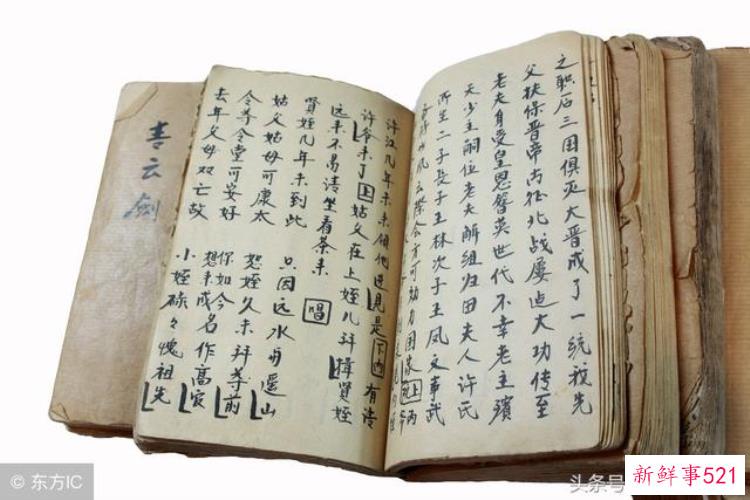 之职后三国俱灭大晋成了一统我先
父扶保晋帝南征北战屡立大功传至
老夫身受皇恩簪英世代不幸老主殡
天少主嗣位老夫解组归田夫人许氏
所生二子长子王林次子王凤文事武
风云際会方可効力国家上丙
许江几年未来领他进见是下内有请
许爷来了姑父在上姪儿拜揖贤姪
远来不易请坐看茶来 唱
贤姪几年未到此 只因远水与遥山
姑父姑母可康太 恕姪久未拜尊前
令尊令堂可安好 你如今想来成名作高官
去年父母双亡故 小姪碌々愧祖先
青云剑
© 东方IC
头条号
新鲜事521